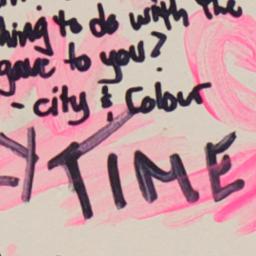 hing to do with the
gave to you?
- city & Colour
Y TIME